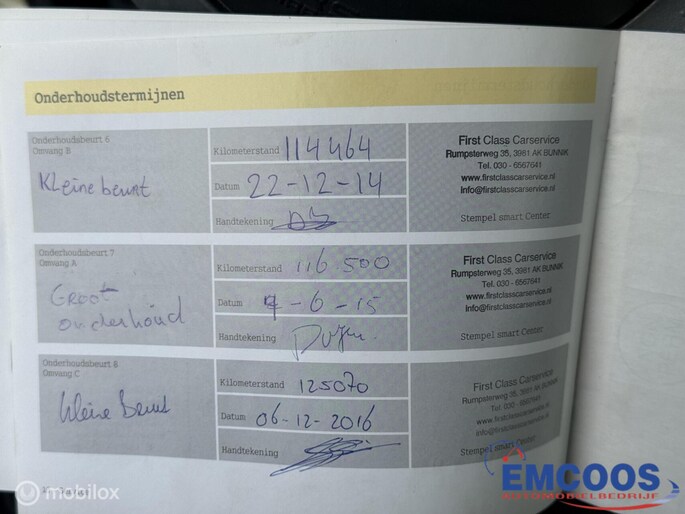 Onderhoudstermijnen
Onderhoudsbeurt 6
Omvang B
Kleine beurt
Kilometerstand 114464
Datum 22-12-14
Handtekening
First Class Carservice
Rumpsterweg 35, 3981 AK BUNNIK
Tel. 030 - 6567641
www.firstclasscarservice.nl
Info@firstclasscarservice.nl
Stempel smart Center
Onderhoudsbeurt 7
Omvang A
Groot
onderhoud
Kilometerstand 116.500
Datum 4-6-15
Handtekening
First Class Carservice
Rumpsterweg 35, 3981 AK BUNNIK
Tel. 030 - 6567641
www.firstclasscarservice.nl
Info@firstclasscarservice.nl
Stempel smart Center
Onderhoudsbeurt 8
Omvang C
Kleine Beurt
Kilometerstand 125070
Datum 06-12-2016
Handtekening
First Class Carservice
Rumpsterweg 35, 3981 AK BUNNIK
Tel. 030 - 6567641
www.firstclasscarservice.nl
info@firstclasscarservice.nl
Stempel smart Center
mobilox
EMCOOS
AUTOMOBIELBEDRIJF